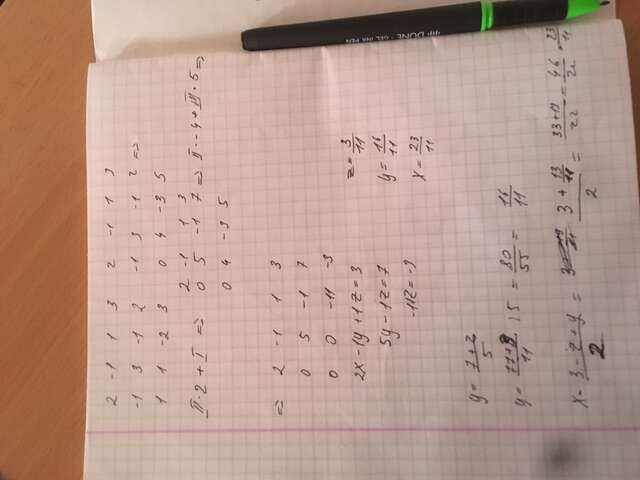 2 -1 1 3 2 -1 1 3
-1 3 -1 2 -1 3 -1 2 =>
1 1 -2 3 0 4 -3 5
2 -1 1 3
II·2 + I => 0 5 -1 7 => II·-4 + III·5 =>
0 4 -3 5
=> 2 -1 1 3
0 5 -1 7
0 0 -11 -3
2x - 1y + 1z = 3
5y - 1z = 7
-11z = -3
z = 3/11
y = 16/11
x = 23/11
y = 7+z/5
= 80/55 =
x = 3-z+y/2 =
3 + 13/11
2
= 33+13/22 = 46/22 = 23/11
DONE - GEL INK PEN